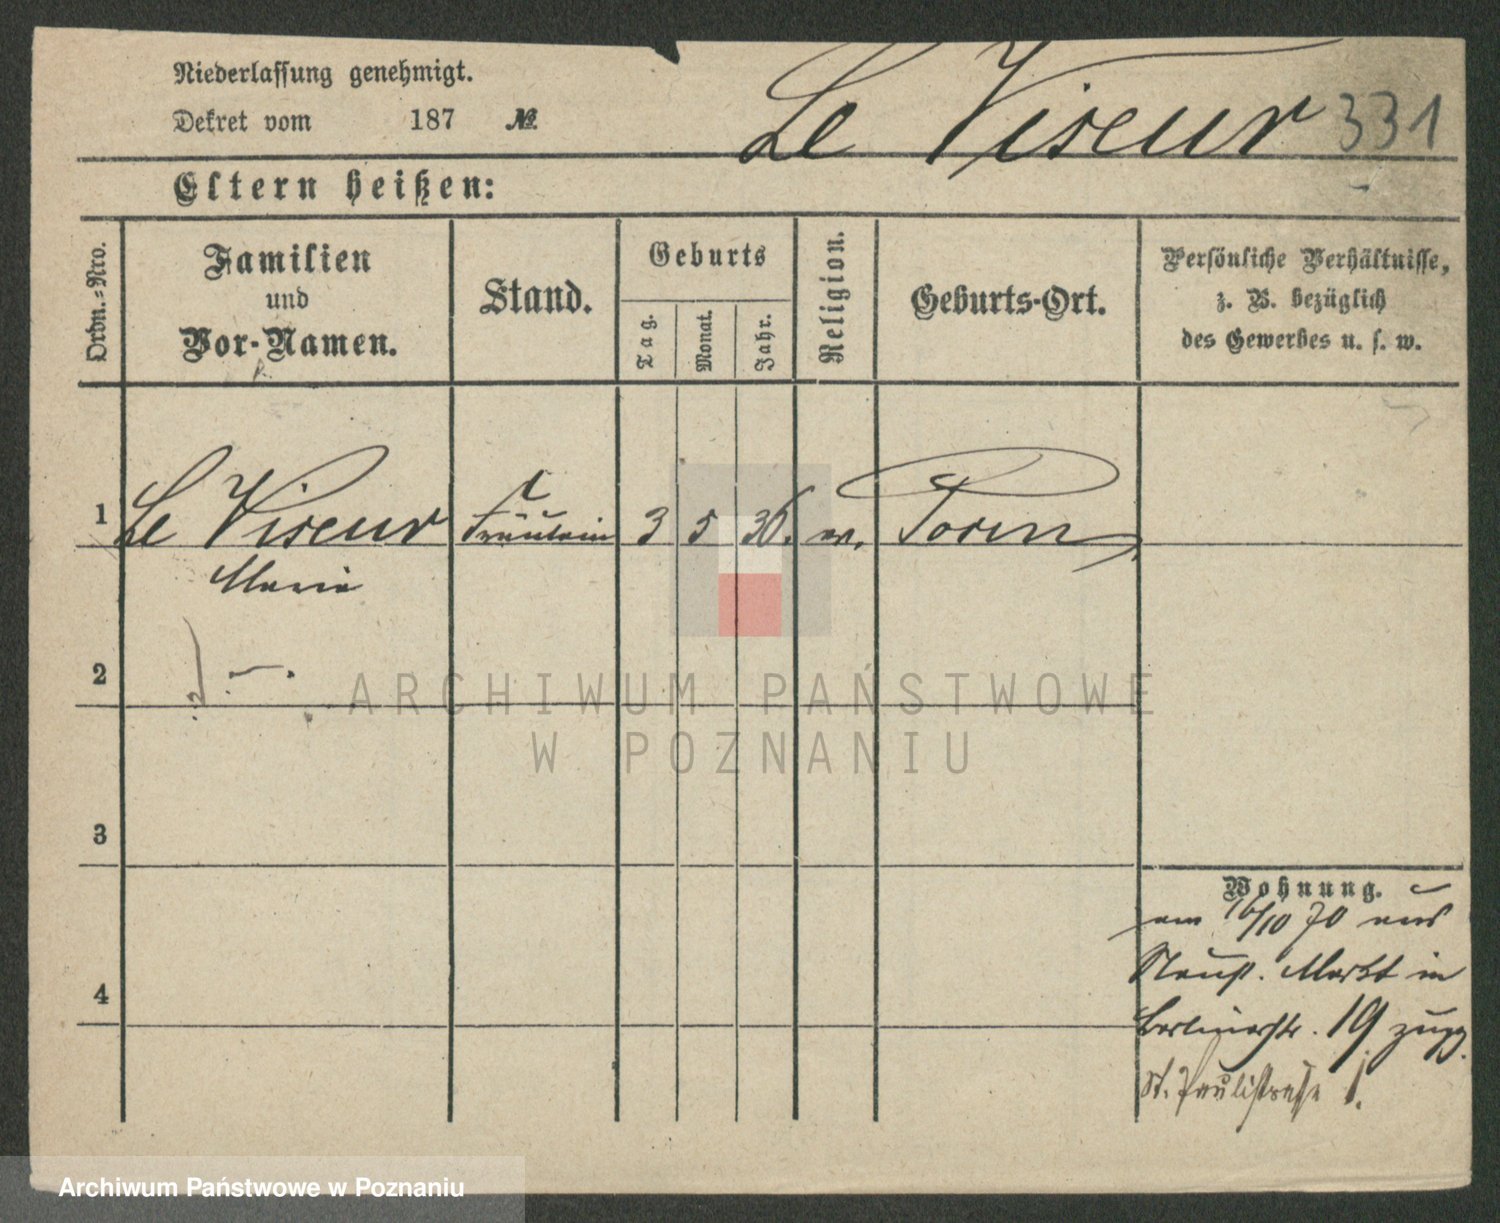 Niederlassung genehmigt.
Dekret vom 187 №
Le Viseur 331
Eltern heißen:
Ordn.-Nro.
Familien
und
Vor-Namen.
Stand.
Geburts
Tag.
Monat.
Jahr.
Religion.
Geburts-Ort.
Persönliche Verhältnisse,
z. B. bezüglich
des Gewerbes u. s. w.
1 Le Viseur Fräulein 3 5 36. Posen
Marie
2
ARCHIWUM PAŃSTWOWE
W POZNANIU
3
Wohnung.
am 16/10 70 aus
Neust. Markt in
4
Berlinerstr. 19 zugz.
St. Paulistrasse 1.
Archiwum Państwowe w Poznaniu